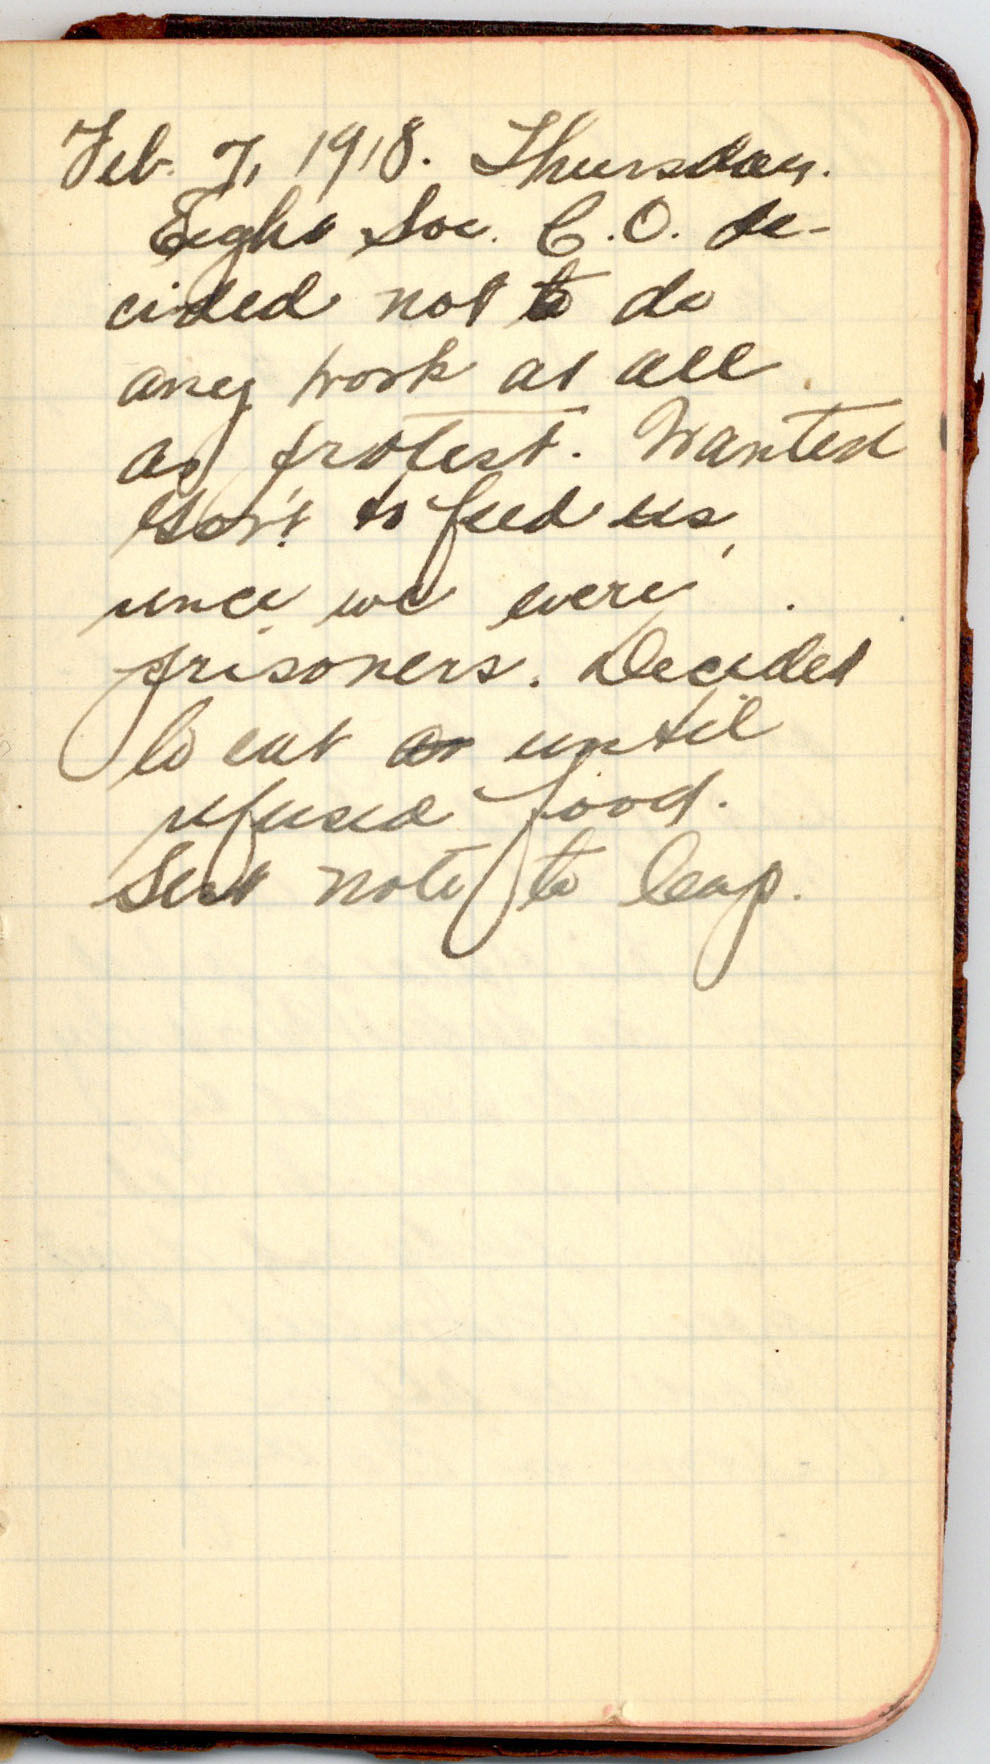 Feb. 7, 1918. Thursday.
Eight Soc. C.O. de-
cided not to do
any work at all
as protest. Wanted
Gov't to feed us,
since we were
prisoners. Decided
to eat until
refused food.
Sent note to Cap.